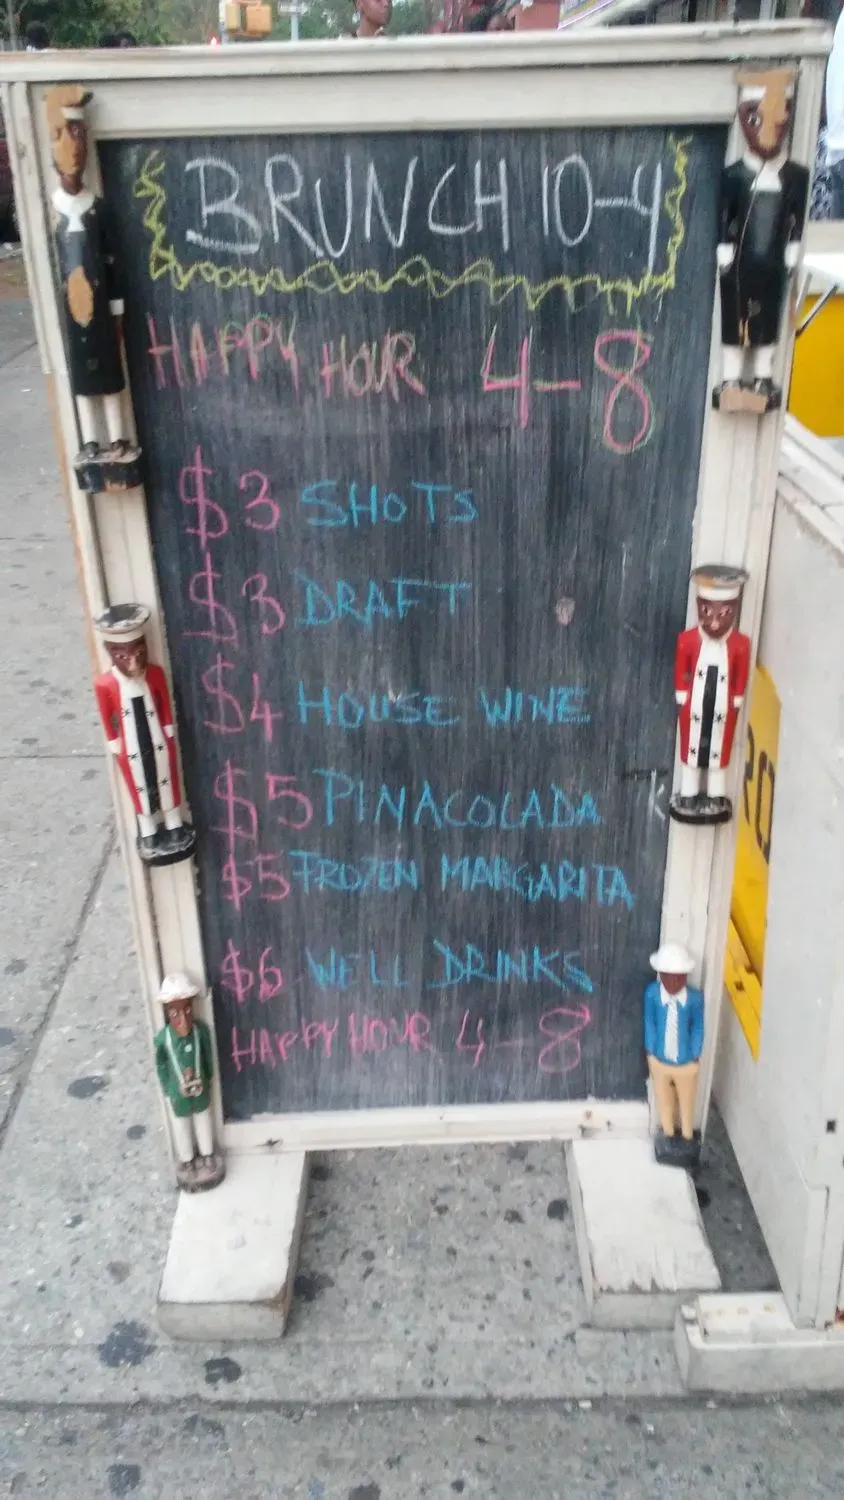 BRUNCH 10-4
HAPPY HOUR 4-8
$3 SHOTS
$3 DRAFT
$4 HOUSE WINE
$5 PINACOLADA
$5 FROZEN MARGARITA
$6 WELL DRINKS
HAPPY HOUR 4-8